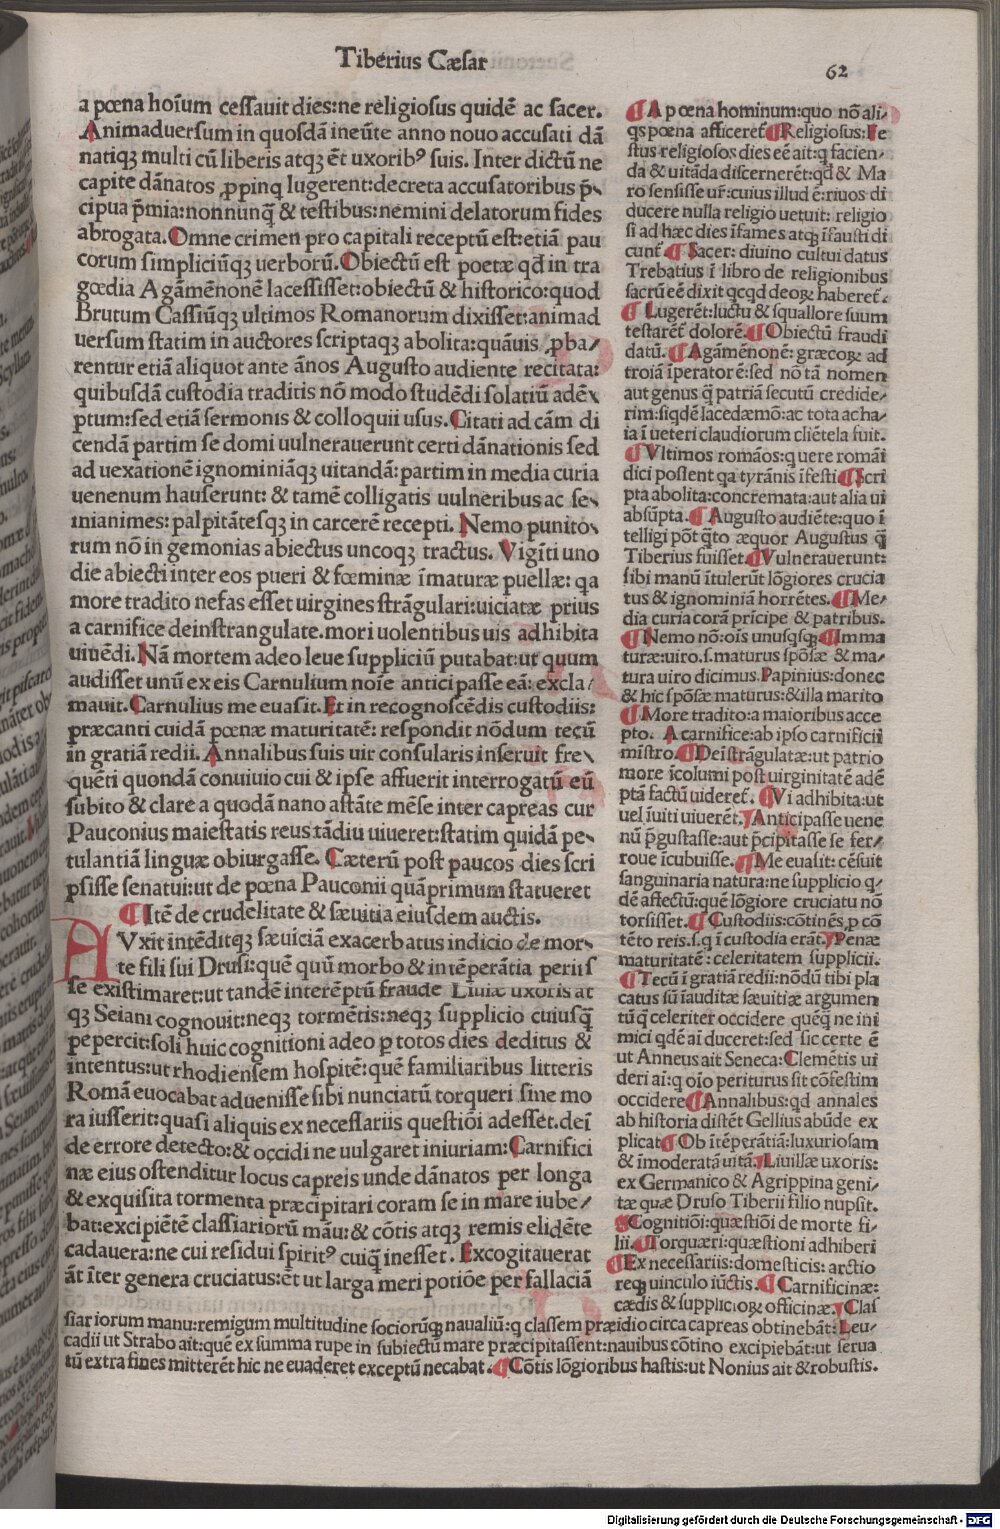 Tiberius Cæsar
62
a pœna hoīum cessauit dies:ne religiosus quidē ac sacer.
Animaduersum in quosdā ineūte anno nouo accusati dā
natiqꝫ multi cū liberis atqꝫ ēt uxoribꝰ suis. Inter dictū ne
capite dānatos ꝓpinq̄ lugerent:decreta accusatoribus p̄-
cipua p̄mia:nonnunq̄ & testibus:nemini delatorum fides
abrogata.Omne crimen pro capitali receptū est:etiā pau
corum simpliciūqꝫ uerborū.Obiectū est poetæ qd in tra
gœdia Agāmēnonē lacessisset:obiectū & historico:quod
Brutum Cassiūqꝫ ultimos Romanorum dixisset:animad
uersum statim in auctores scriptaqꝫ abolita:quāuis ꝓba/
rentur etiā aliquot ante ānos Augusto audiente recitata:
quibusdā custodia traditis nō modo studēdi solatiū adē-
ptum:sed etiā sermonis & colloquii usus.Citati ad cām di
cendā partim se domi uulnerauerunt certi dānationis sed
ad uexationē ignominiāqꝫ uitandā:partim in media curia
uenenum hauserunt: & tamē colligatis uulneribus ac se-
inianimes: palpitātesqꝫ in carcerē recepti. Nemo punito-
rum nō in gemonias abiectus uncoqꝫ tractus. Vigīti uno
die abiecti inter eos pueri & fœminæ īmaturæ puellæ: qa
more tradito nefas esset uirgines strāgulari:uiciatæ prius
a carnifice deinstrangulate.mori uolentibus uis adhibita
uiuēdi.Nā mortem adeo leue suppliciū putabat:ut quum
audisset unū ex eis Carnulium noīe anticipasse eā: excla/
mauit.Carnulius me euasit.Et in recognoscēdis custodiis:
præcanti cuidā pœnæ maturitatē: respondit nōdum tecū
in gratiā redii. Annalibus suis uir consularis inseruit fre-
quēti quondā conuiuio cui & ipse affuerit interrogatū eū
subito & clare a quodā nano astāte mēse inter capreas cur
Pauconius maiestatis reus tādiu uiueret:statim quidā pe-
tulantiā linguæ obiurgasse. Cæterū post paucos dies scri
psisse senatui:ut de pœna Pauconii quāprimum statueret
¶Itē de crudelitate & sæuitia eiusdem auctis.
AVxit intēditqꝫ sæuiciā exacerbatus indicio de mor-
te fili sui Drusi:quē quū morbo & intēperātia periis
se existimaret:ut tandē interēptū fraude Liuiæ uxoris at
qꝫ Seiani cognouit:neqꝫ tormētis:neqꝫ supplicio cuiusq̄
pepercit:soli huic cognitioni adeo ꝑ totos dies deditus &
intentus:ut rhodiensem hospitē:quē familiaribus litteris
Romā euocabat aduenisse sibi nunciatū torqueri sine mo
ra iusserit:quasi aliquis ex necessariis questiōi adesset.deī
de errore detecto:& occidi ne uulgaret iniuriam:Carnifici
næ eius ostenditur locus capreis unde dānatos per longa
& exquisita tormenta præcipitari coram se in mare iube/
bat:excipiētē classiariorū māu:& cōtis atqꝫ remis elidēte
cadauera:ne cui residui spiritꝰ cuiq̄ inesset. Excogitauerat
āt īter genera cruciatus:ēt ut larga meri potiōe per fallaciā
¶A pœna hominum:quo nō ali/
qs pœna afficeret̄¶Religiosus:Fe
stus religiosos dies eē ait:q facien/
da & uitāda discernerēt:qd & Ma
ro sensisse ur̄:cuius illud ē:riuos di
ducere nulla religio uetuit: religio
si ad hæc dies īfames atqꝫ īfausti di
cunt̄.¶Sacer: diuino cultui datus
Trebatius ī libro de religionibus
sacrū eē dixit qcqd deoꝝ haberet̄.
¶Lugerēt:luctu & squallore suum
testarēt̄ dolorē.¶Obiectū fraudi
datū.¶Agāmēnonē: græcoꝝ ad
troiā īperatorē:sed nō tā nomen
aut genus q̄ patriā secutū credide/
rim:siqdē lacedæmō:ac tota acha/
ia ī ueteri claudiorum cliētela fuit.
¶Vltimos romāos:q uere romāi
dici possent qa tyrānis īfesti¶Scri
pta abolita:concremata:aut alia ui
absūpta.¶Augusto audiēte:quo ī
telligi pōt q̄to æquor Augustus q̄
Tiberius fuisset.¶Vulnerauerunt:
sibi manū ītulerūt lōgiores crucia
tus & ignominiā horrētes.¶Me/
dia curia corā prīcipe & patribus.
¶Nemo nō:ois unusqsqꝫ¶Imma
turæ:uiro.s.maturus spōsæ & ma/
tura uiro dicimus.Papinius:donec
& hic spōsæ maturus:& illa marito
¶More tradito:a maioribus acce
pto. A carnifice:ab ipso carnificii
mīstro.¶Deīstrāgulatæ:ut patrio
more īcolumi post uirginitatē adē
ptā factū uideret̄.¶Vi adhibita:ut
uel īuiti uiuerēt.¶Anticipasse uene
nū p̄gustasse:aut p̄cipitasse se fer/
roue īcubuisse.¶Me euasit: cēsuit
sanguinaria natura:ne supplicio q/
dē affectū:quē lōgiore cruciatu nō
torsisset.¶Custodiis:cōtinēs ꝓ cō
tēto reis.s.q ī custodia erāt.¶Penæ
maturitatē: celeritatem supplicii.
¶Tecū ī gratiā redii:nōdū tibi pla
catus sū īauditæ sæuitiæ argumen
tū q̄ celeriter occidere quēq̄ ne ini
mici qdē aī duceret:sed sic certe ē
ut Anneus ait Seneca:Clemētis ui
deri aī:q oīo periturus sit cōfestim
occidere¶Annalibus:qd annales
ab historia distēt Gellius abūde ex
plicat¶Ob ītēperātiā:luxuriosam
& īmoderatā uitā.¶Liuillæ uxoris:
ex Germanico & Agrippina geni/
tæ quæ Druso Tiberii filio nupsit.
¶Cognitiōi:quæstiōi de morte fi/
lii.¶Torquæri:quæstioni adhiberi
¶Ex necessariis:domesticis: arctio
reqꝫ uinculo iūctis.¶Carnificinæ:
cædis & supplicioꝝ officinæ.¶Clas
siariorum manu:remigum multitudine sociorūqꝫ naualiū:q classem præsidio circa capreas obtinebāt:Leu/
cadii ut Strabo ait:quē ex summa rupe in subiectū mare præcipitassent:nauibus cōtino excipiebāt:ut serua
tū extra fines mitterēt hic ne euaderet exceptū necabat.¶Cōtis lōgioribus hastis:ut Nonius ait & robustis.
Digitalisierung gefördert durch die Deutsche Forschungsgemeinschaft - DFG